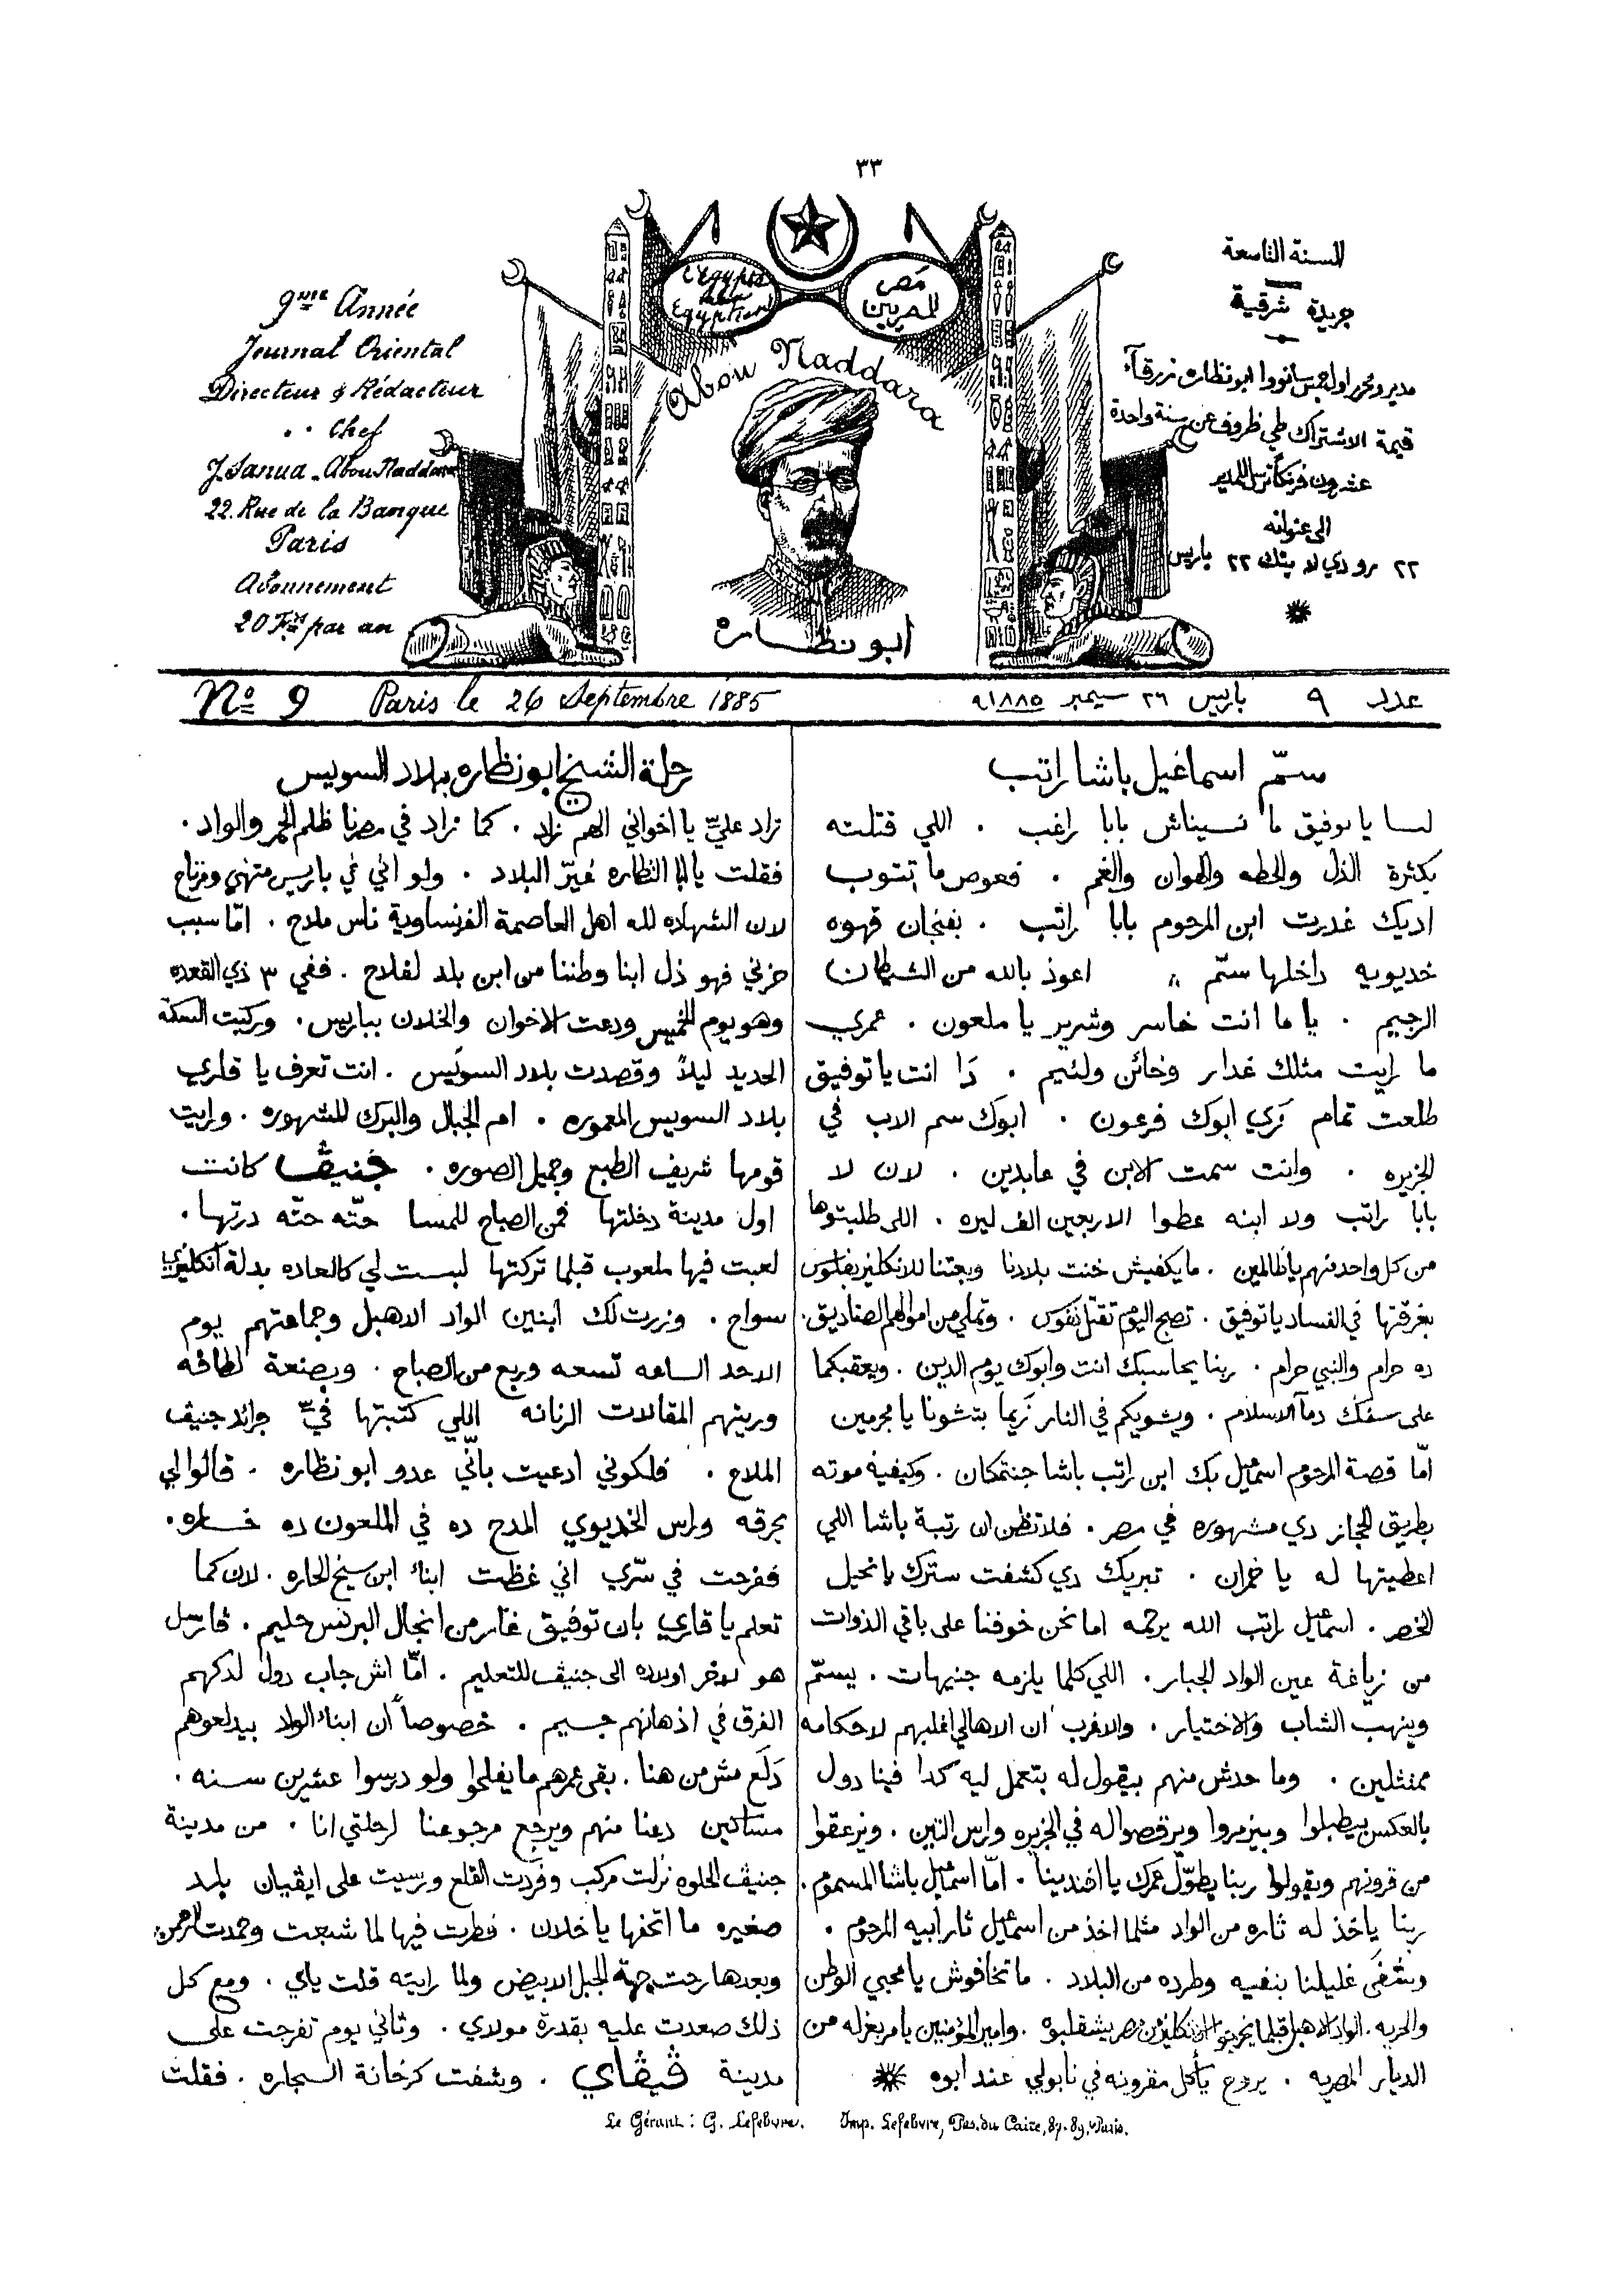 ٣٣
9me Année
Journal Oriental
Directeur & Rédacteur
Chef
J. Sanua. Abou Naddara
22. Rue de la Banque
Paris
Abonnement
20 Frs par an
L'Egypte
Egyptiens
مصر
للمصريين
Abou Naddara
أبو نظاره
السنة التاسعة
جريدة شرقية
قيمة الاشتراك طي ظروف عن سنة واحدة
الى عنوانه
٢٢ رو دي لا بنك ٢٢ باريس
No 9 Paris le 26 Septembre 1885
عدد ٩ باريس ٢٦ سبتمبر ١٨٨٥
سمّ اسماعيل باشا راتب
لسا يا توفيق ما نسيناش بابا راغب . اللي قتلته
بكثرة الذل والحطه والهوان والغم . فعوض ما تتوب
اديك غدرت ابن المرحوم بابا راتب . بفنجان قهوه
خديويه داخلها سمّ ،، اعوذ بالله من الشيطان
الرجيم . يا ما انت خاسر وشرير يا ملعون . عمري
ما رايت مثلك غدار وخائن ولئيم . دَا انت يا توفيق
طلعت تمام زي ابوك فرعون . ابوك سم الاب في
الجزيره . وانت سمت الابن في عابدين . لان لا
بابا راتب ولا ابنه عطوا الاربعين الف ليره . اللي طلبتوها
من كل واحد منهم يا ظالمين . ما يكفيش خنت بلادنا وبعتنا للانكليز بفلوس
بغرقتها في الفساد يا توفيق . تصبح اليوم تقتل نفوس . وتملي من اموالهم الصناديق .
ده حرام والنبي حرام . ربنا يحاسبك انت وابوك يوم الدين . ويعقبكما
على سفك دمآ الاسلام . ويشويكم في النار زيما بتشونا يا مجرمين
امّا قصة المرحوم اسماعيل بك ابن راتب باشا جنتمكان . وكيفية موته
بطريق الحجاز دي مشهوره في مصر . فلا تظن ان رتبة باشا اللي
اعطيتها له يا خمران . تبريك دي كشفت سترك يا نحيل
الخصر . اسماعيل راتب الله يرحمه اما نحن خوفنا على باقي الذوات
من زياغة عين الواد الجبار . اللي كلما يلزمه جنيهات . يسمّ
وينهب الشاب والاختيار . والاغرب ان الاهالي اغلبهم لاحكامه
ممتثلين . وما حدش منهم بيقول له بتعمل ليه كدا فينا دول
بالعكس بيطبلوا وبيزمروا ويرقصوا له في الجزيره وراس التين . ويزعقوا
من قرونهم ويقولوا ربنا يطوّل عمرك يا افندينا . امّا اسماعيل باشا المسموم .
ربنا ياخذ له ثاره من الواد مثلما اخذ من اسماعيل ثار ابيه المرحوم .
وشفى غليلنا بنفيه وطرده من البلاد . ما تخافوش يا محبي الوطن
والحريه . الواد الاهبل قبلما يخرجوا الانكليز من مصر بيشقلبوه . وامير المؤمنين يامر بعزله من
الديار المصريه . يروح يأكل مقرونه في نابولي عند ابوه
رحلة الشيخ ابو نظاره ببلاد السويس
زاد عليّ يا اخواني الهم زاد . كما زاد في مصرنا ظلم الحمر والواد .
فقلت يا ابا النظاره غيّر البلاد . ولو اني في باريس متهني ومرتاح
لان الشهاده لله اهل العاصمة الفرنساوية ناس ملاح . امّا سبب
حزني فهو ذل ابنا وطننا من ابن بلد لفلاح . ففي ٣ ذي القعده
وهو يوم الخميس ودعت الاخوان والخلان بباريس . وركبت السكة
الحديد ليلاً وقصدت بلاد السويس . انت تعرف يا قاري
بلاد السويس المعموره . ام الجبال والبرك المشهوره . ورايت
قومها شريف الطبع وجميل الصوره . جنيڤ كانت
اول مدينة دخلتها فمن الصباح للمسا حتّه حتّه درتها .
لعبت فيها ملعوب قبلما تركتها لبست لي كالعاده بدلة انكليزي
سواح . وزرت لك ابنين الواد الاهبل وجماعتهم يوم
الاحد الساعه تسعه وربع من الصباح . وبصنعة لطافه
وريتهم المقالات الرنانه اللي كتبتها فيّ جرائد جنيڤ
الملاح . فلكوني ادعيت بانّي عدو ابو نظاره . قالوا لي
بحرقه وراس الخديوي المدح ده في الملعون ده خساره .
ففرحت في سّري اني غظت ابناء ابن شيخ الحاره . لان كما
تعلم يا قاري بان توفيق غار من انجال البرنس حليم . فارسل
هو لوخر اولاده الى جنيڤ للتعليم . امّا اش جاب دول لدكهم
الفرق في اذهانهم جسيم . خصوصاً ان ابناء الواد بيدلعوهم
دَلَع مش من هنا . بقى عمرهم ما يفلحوا ولو درسوا عشرين سنه .
مساكين دعنا منهم ويرجع مرجوعنا لرحلتي انا . من مدينة
جنيڤ الحلوه نزلت مركب وفردت القلع ورسيت على ايڤيان بلد
صغيره ما اتحفها يا خلان . فطرت فيها لما شبعت وحمدت الرحمن
وبعدها رحت جهة الجبل الابيض ولما رايته قلت ياي . ومع كل
ذلك صعدت عليه بقدرة مولاي . وثاني يوم تفرجت على
مدينة ڤيڤاي . وشفت كرخانة السجاره . فقلت
Le Gérant : G. Lefebvre. Imp. Lefebvre, Pas. du Caire, 87-89, Paris.